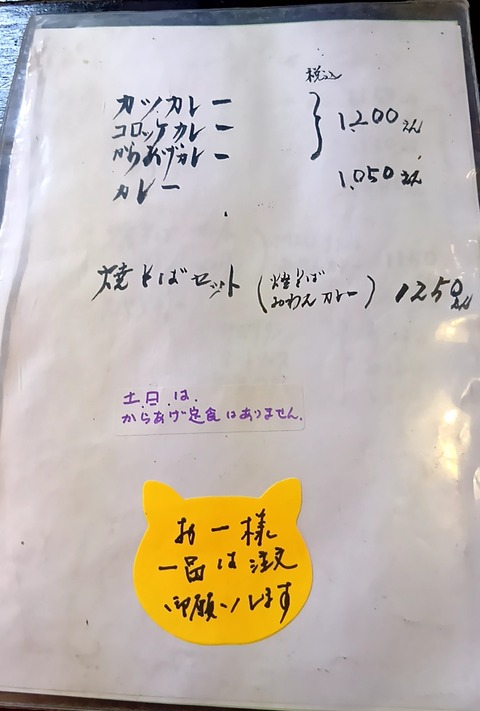 税込
カツカレー
コロッケカレー
からあげカレー
} 1,200えん
カレー 1,050えん
焼そばセット (焼そば みわんカレー) 1250えん
土日は、
からあげ定食はありません。
お一様
一品は注文
御願いします